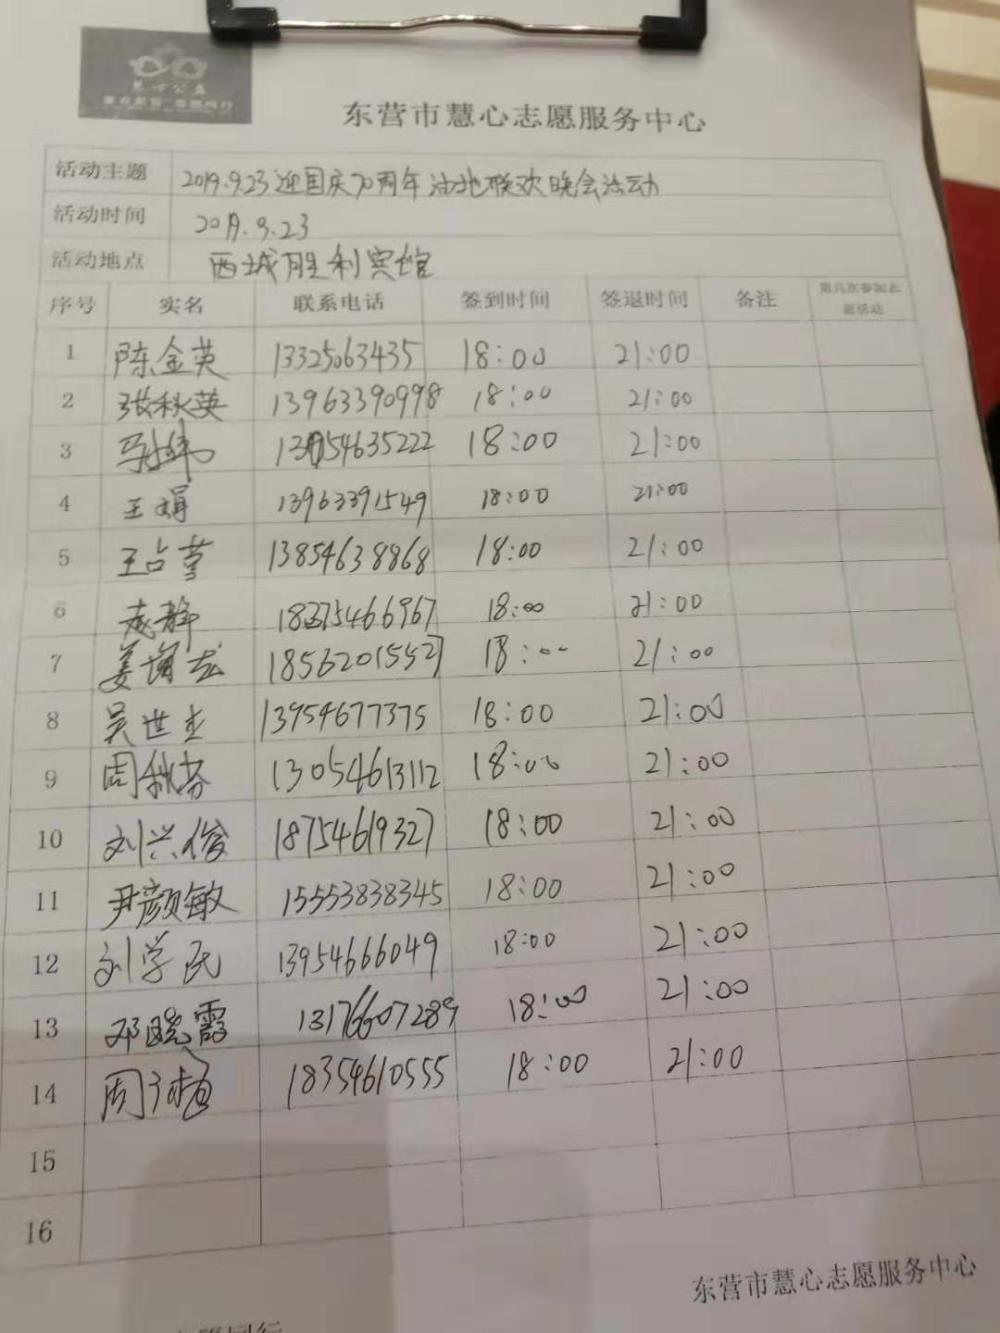 慧心公益
东营市慧心志愿服务中心
活动主题 2019.9.23迎国庆70周年油地联欢晚会活动
活动时间 2019.9.23
活动地点 西城胜利宾馆
序号 实名 联系电话 签到时间 签退时间 备注 第几次参加志愿活动
1 陈金英 13325063435 18:00 21:00
2 张秋英 13963390998 18:00 21:00
3 18:00 21:00
4 王娟 13963391549 18:00 21:00
5 王占营 13854638868 18:00 21:00
6 18:00 21:00
7 姜 18562015527 18:00 21:00
8 吴世杰 13954677375 18:00 21:00
9 周秋芬 13054613112 18:00 21:00
10 刘兴俊 18754619327 18:00 21:00
11 尹颜敏 15553838345 18:00 21:00
12 刘学民 13954666049 18:00 21:00
13 邓晓霞 13176607289 18:00 21:00
14 周 18354610555 18:00 21:00
15
16
东营市慧心志愿服务中心